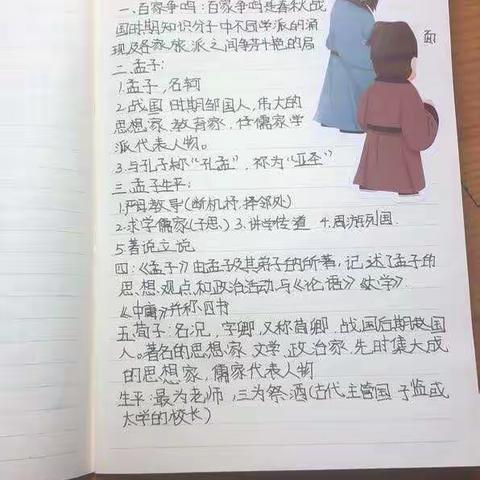 一、百家争鸣：百家争鸣是春秋战
国时期知识分子中不同学派的涌
现及各家流派之间争芳斗艳的局
面
二.孟子：
1.孟子，名轲
2.战国时期邹国人，伟大的
思想家、教育家，儒家学
派代表人物。
3.与孔子称“孔孟”，称为“亚圣”
三.孟子生平：
1.母教导(断机杼、择邻处)
2.求学儒家(子思) 3.讲学传道 4.周游列国.
5.著说立说
四：《孟子》由孟子及其弟子的所著，记述了孟子的
思想、观点和政治活动与《论语》《大学》.
《中庸》并称四书
五.荀子：名况，字卿，又称荀卿，战国后期赵国
人。著名的思想家、文学、政治家，先时集大成
的思想家，儒家代表人物
生平：最为老师，三为祭酒(古代主管国子监或
太学的校长)